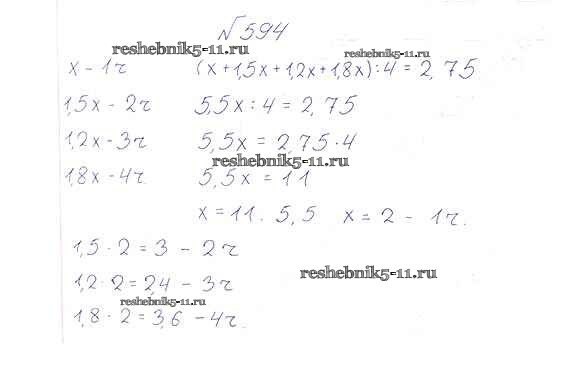 №594
reshebnik5-11.ru
reshebnik5-11.ru
x – 1ч (x+1,5x+1,2x+1,8x):4=2,75
1,5x – 2ч 5,5x:4=2,75
1,2x – 3ч 5,5x=2,75·4
reshebnik5-11.ru
1,8x – 4ч. 5,5x=11
x=11. 5,5 x=2 – 1ч.
1,5·2=3 – 2ч
reshebnik5-11.ru
1,2·2=2,4 – 3ч
reshebnik5-11.ru
1,8·2=3,6 – 4ч.